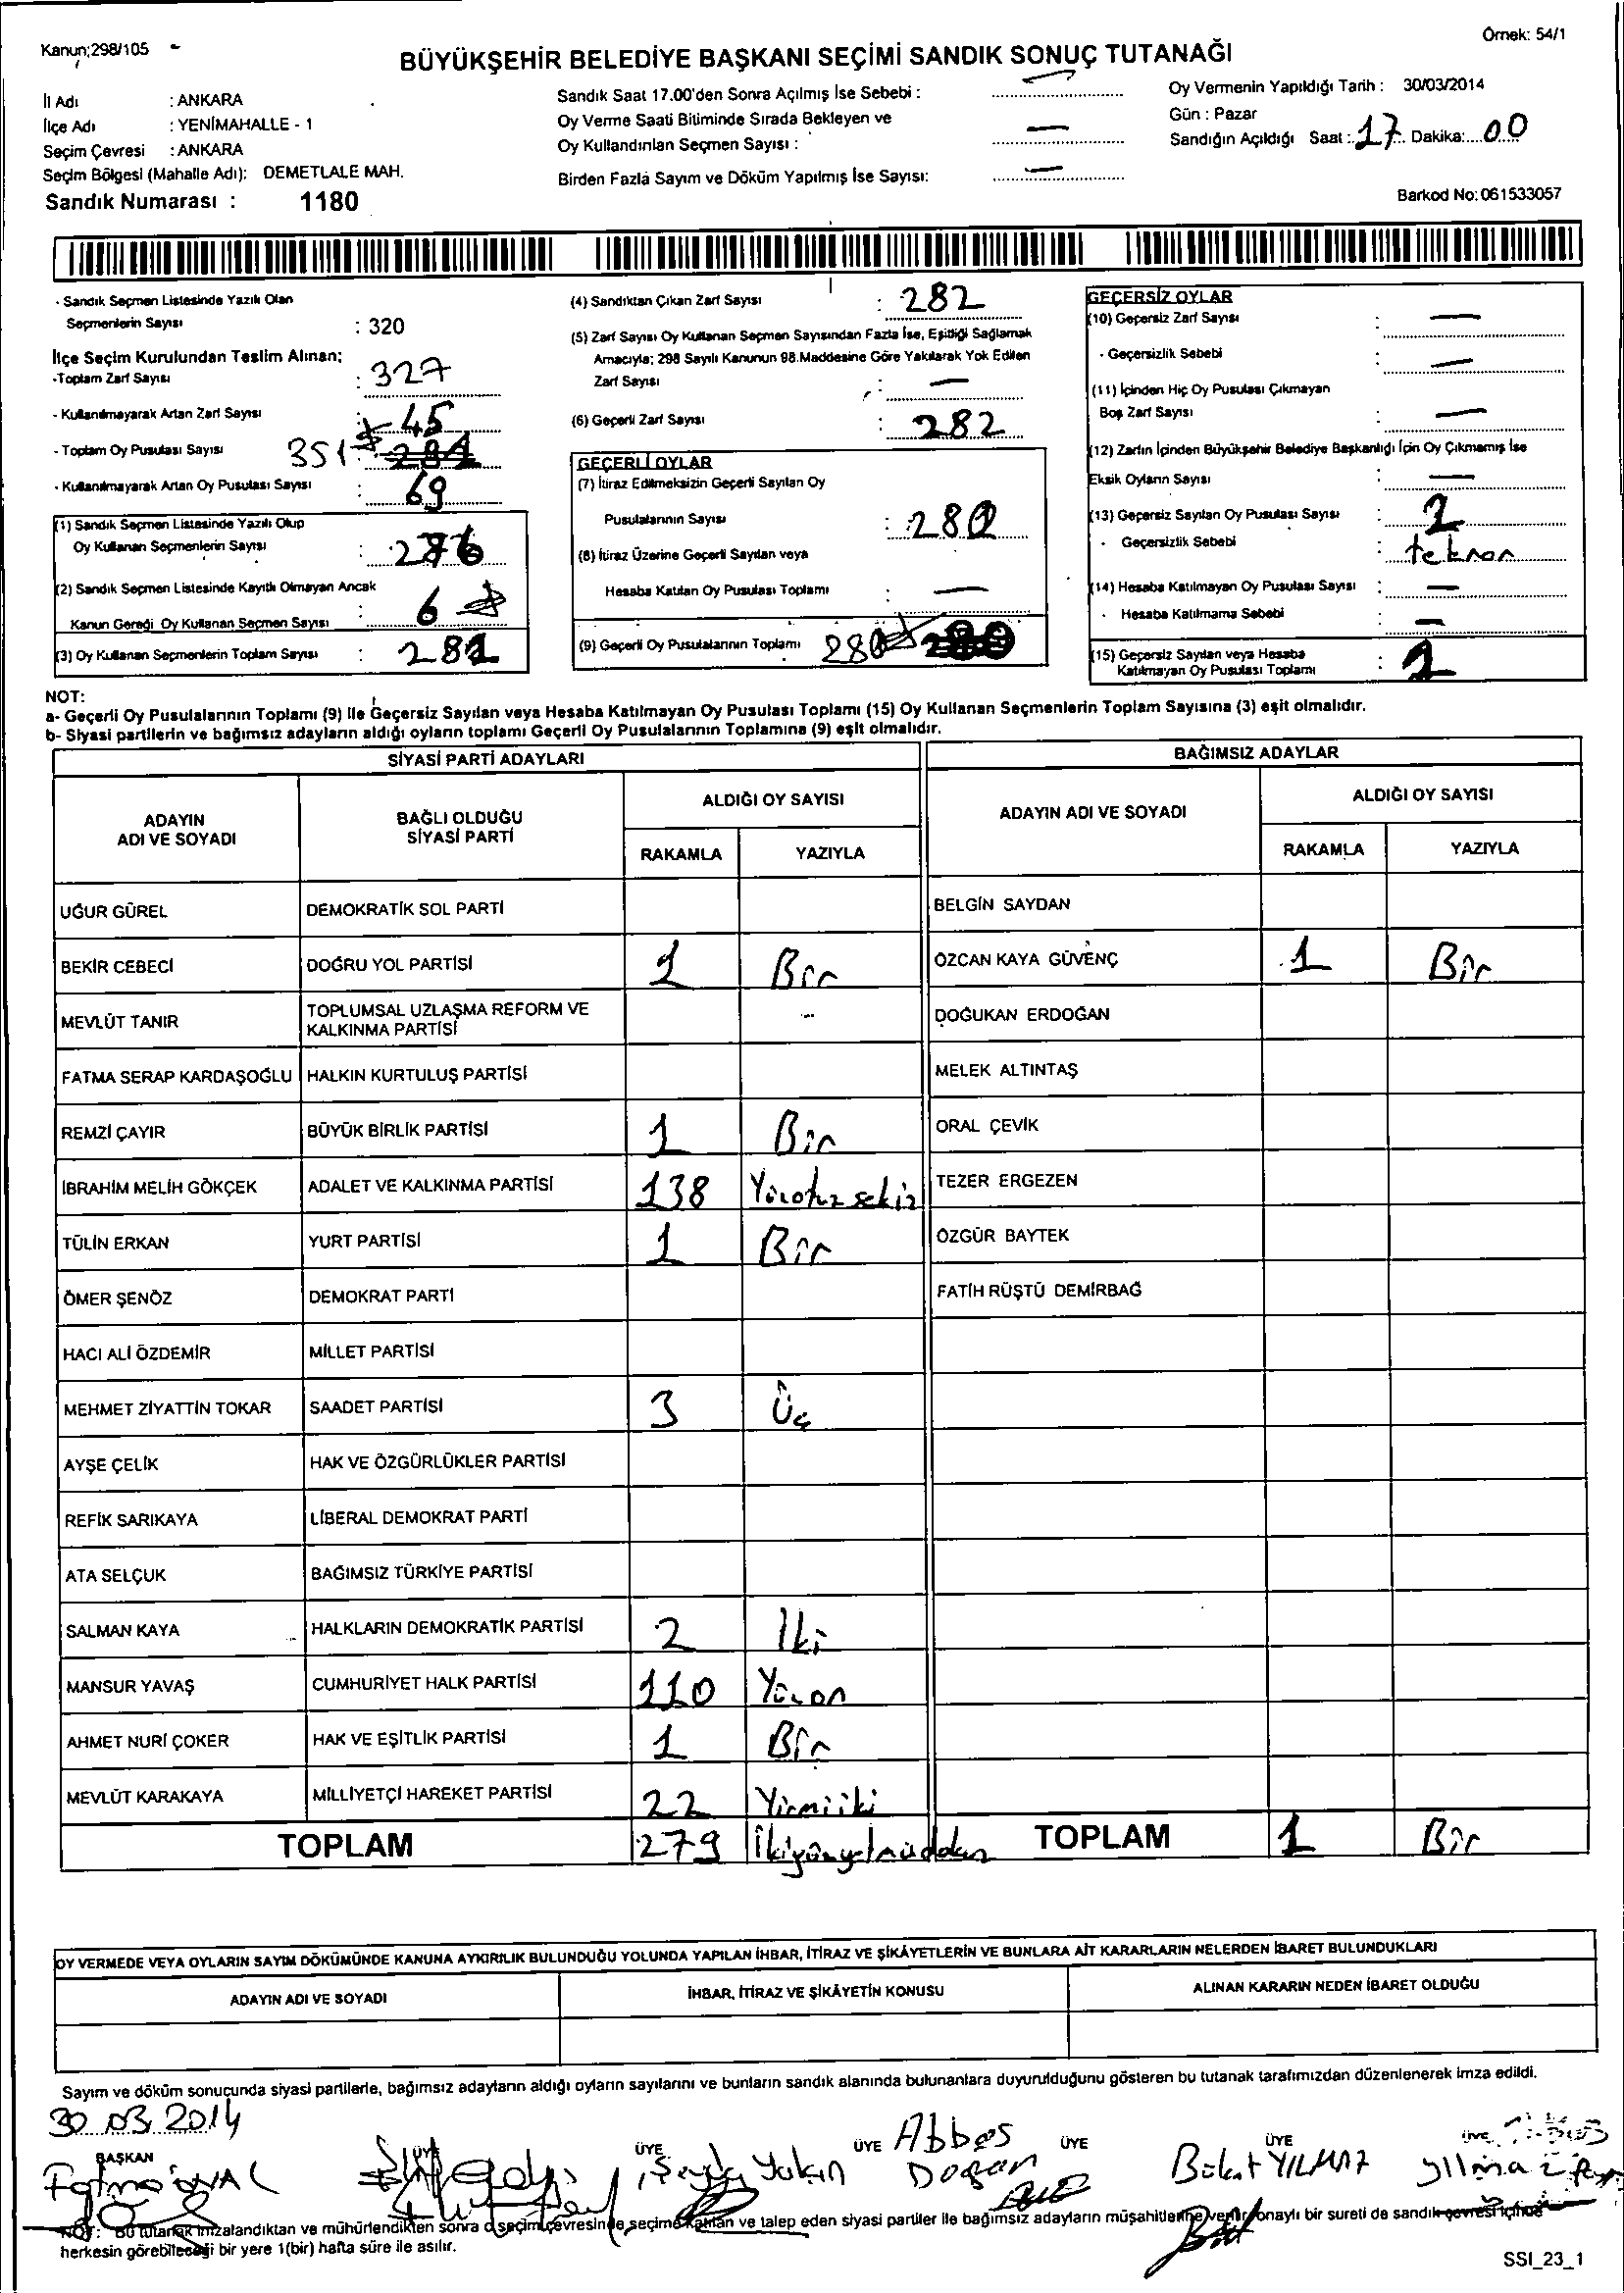 Kanun;298/105
Örnek: 54/1
BÜYÜKŞEHİR BELEDİYE BAŞKANI SEÇİMİ SANDIK SONUÇ TUTANAĞI
İl Adı : ANKARA
İlçe Adı : YENİMAHALLE - 1
Seçim Çevresi : ANKARA
Seçim Bölgesi (Mahalle Adı): DEMETLALE MAH.
Sandık Numarası : 1180
Sandık Saat 17.00'den Sonra Açılmış İse Sebebi : —
Oy Verme Saati Bitiminde Sırada Bekleyen ve
Oy Kullandırılan Seçmen Sayısı : —
Birden Fazla Sayım ve Döküm Yapılmış İse Sayısı: —
Oy Vermenin Yapıldığı Tarih : 30/03/2014
Gün : Pazar
Sandığın Açıldığı Saat : 17 Dakika: 00
Barkod No: 061533057
- Sandık Seçmen Listesinde Yazılı Olan
Seçmenlerin Sayısı : 320
İlçe Seçim Kurulundan Teslim Alınan;
-Toplam Zarf Sayısı : 327
- Kullanılmayarak Artan Zarf Sayısı : 45
- Toplam Oy Pusulası Sayısı 351
- Kullanılmayarak Artan Oy Pusulası Sayısı : 69
(1) Sandık Seçmen Listesinde Yazılı Olup
Oy Kullanan Seçmenlerin Sayısı : 276
(2) Sandık Seçmen Listesinde Kayıtlı Olmayan Ancak
Kanun Gereği Oy Kullanan Seçmen Sayısı : 6
(3) Oy Kullanan Seçmenlerin Toplam Sayısı : 282
(4) Sandıktan Çıkan Zarf Sayısı : 282
(5) Zarf Sayısı Oy Kullanan Seçmen Sayısından Fazla İse, Eşitliği Sağlamak
Amacıyla; 298 Sayılı Kanunun 98.Maddesine Göre Yakılarak Yok Edilen
Zarf Sayısı : —
(6) Geçerli Zarf Sayısı : 282
GEÇERLİ OYLAR
(7) İtiraz Edilmeksizin Geçerli Sayılan Oy
Pusulalarının Sayısı : 280
(8) İtiraz Üzerine Geçerli Sayılan veya
Hesaba Katılan Oy Pusulası Toplamı : —
(9) Geçerli Oy Pusulalarının Toplamı 280
GEÇERSİZ OYLAR
(10) Geçersiz Zarf Sayısı : —
- Geçersizlik Sebebi : —
(11) İçinden Hiç Oy Pusulası Çıkmayan
Boş Zarf Sayısı : —
(12) Zarfın İçinden Büyükşehir Belediye Başkanlığı İçin Oy Çıkmamış İse
Eksik Oyların Sayısı : —
(13) Geçersiz Sayılan Oy Pusulası Sayısı : 2
- Geçersizlik Sebebi :
(14) Hesaba Katılmayan Oy Pusulası Sayısı : —
- Hesaba Katılmama Sebebi : —
(15) Geçersiz Sayılan veya Hesaba
Katılmayan Oy Pusulası Toplamı : 2
NOT:
a- Geçerli Oy Pusulalarının Toplamı (9) ile Geçersiz Sayılan veya Hesaba Katılmayan Oy Pusulası Toplamı (15) Oy Kullanan Seçmenlerin Toplam Sayısına (3) eşit olmalıdır.
b- Siyasi partilerin ve bağımsız adayların aldığı oyların toplamı Geçerli Oy Pusulalarının Toplamına (9) eşit olmalıdır.
SİYASİ PARTİ ADAYLARI
ADAYIN ADI VE SOYADI
BAĞLI OLDUĞU SİYASİ PARTİ
ALDIĞI OY SAYISI
RAKAMLA YAZIYLA
UĞUR GÜREL DEMOKRATİK SOL PARTİ
BEKİR CEBECİ DOĞRU YOL PARTİSİ 1 Bir
MEVLÜT TANIR TOPLUMSAL UZLAŞMA REFORM VE
KALKINMA PARTİSİ
FATMA SERAP KARDAŞOĞLU HALKIN KURTULUŞ PARTİSİ
REMZİ ÇAYIR BÜYÜK BİRLİK PARTİSİ 1 Bir
İBRAHİM MELİH GÖKÇEK ADALET VE KALKINMA PARTİSİ 138 Yüzotuz sekiz
TÜLİN ERKAN YURT PARTİSİ 1 Bir
ÖMER ŞENÖZ DEMOKRAT PARTİ
HACI ALİ ÖZDEMİR MİLLET PARTİSİ
MEHMET ZİYATTİN TOKAR SAADET PARTİSİ 3 Üç
AYŞE ÇELİK HAK VE ÖZGÜRLÜKLER PARTİSİ
REFİK SARIKAYA LİBERAL DEMOKRAT PARTİ
ATA SELÇUK BAĞIMSIZ TÜRKİYE PARTİSİ
SALMAN KAYA HALKLARIN DEMOKRATİK PARTİSİ 2 İki
MANSUR YAVAŞ CUMHURİYET HALK PARTİSİ 110 Yüzon
AHMET NURİ ÇOKER HAK VE EŞİTLİK PARTİSİ 1 Bir
MEVLÜT KARAKAYA MİLLİYETÇİ HAREKET PARTİSİ 22 Yirmiiki
TOPLAM 279
BAĞIMSIZ ADAYLAR
ADAYIN ADI VE SOYADI
ALDIĞI OY SAYISI
RAKAMLA YAZIYLA
BELGİN SAYDAN
ÖZCAN KAYA GÜVENÇ 1 Bir
DOĞUKAN ERDOĞAN
MELEK ALTINTAŞ
ORAL ÇEVİK
TEZER ERGEZEN
ÖZGÜR BAYTEK
FATİH RÜŞTÜ DEMİRBAĞ
TOPLAM 1 Bir
OY VERMEDE VEYA OYLARIN SAYIM DÖKÜMÜNDE KANUNA AYKIRILIK BULUNDUĞU YOLUNDA YAPILAN İHBAR, İTİRAZ VE ŞİKÂYETLERİN VE BUNLARA AİT KARARLARIN NELERDEN İBARET BULUNDUKLARI
ADAYIN ADI VE SOYADI İHBAR, İTİRAZ VE ŞİKÂYETİN KONUSU ALINAN KARARIN NEDEN İBARET OLDUĞU
Sayım ve döküm sonucunda siyasi partilerle, bağımsız adayların aldığı oyların sayılarını ve bunların sandık alanında bulunanlara duyurulduğunu gösteren bu tutanak tarafımızdan düzenlenerek imza edildi.
30.03.2014
BAŞKAN ÜYE ÜYE ÜYE ÜYE ÜYE ÜYE
Abbas Doğan
Bülent YILMAZ
NOT: Bu tutanak imzalandıktan ve mühürlendikten sonra o seçim çevresinde seçime katılan ve talep eden siyasi partiler ile bağımsız adayların müşahitlerine verilir, onaylı bir sureti de sandık çevresi içinde
herkesin görebileceği bir yere 1(bir) hafta süre ile asılır.
SSI_23_1